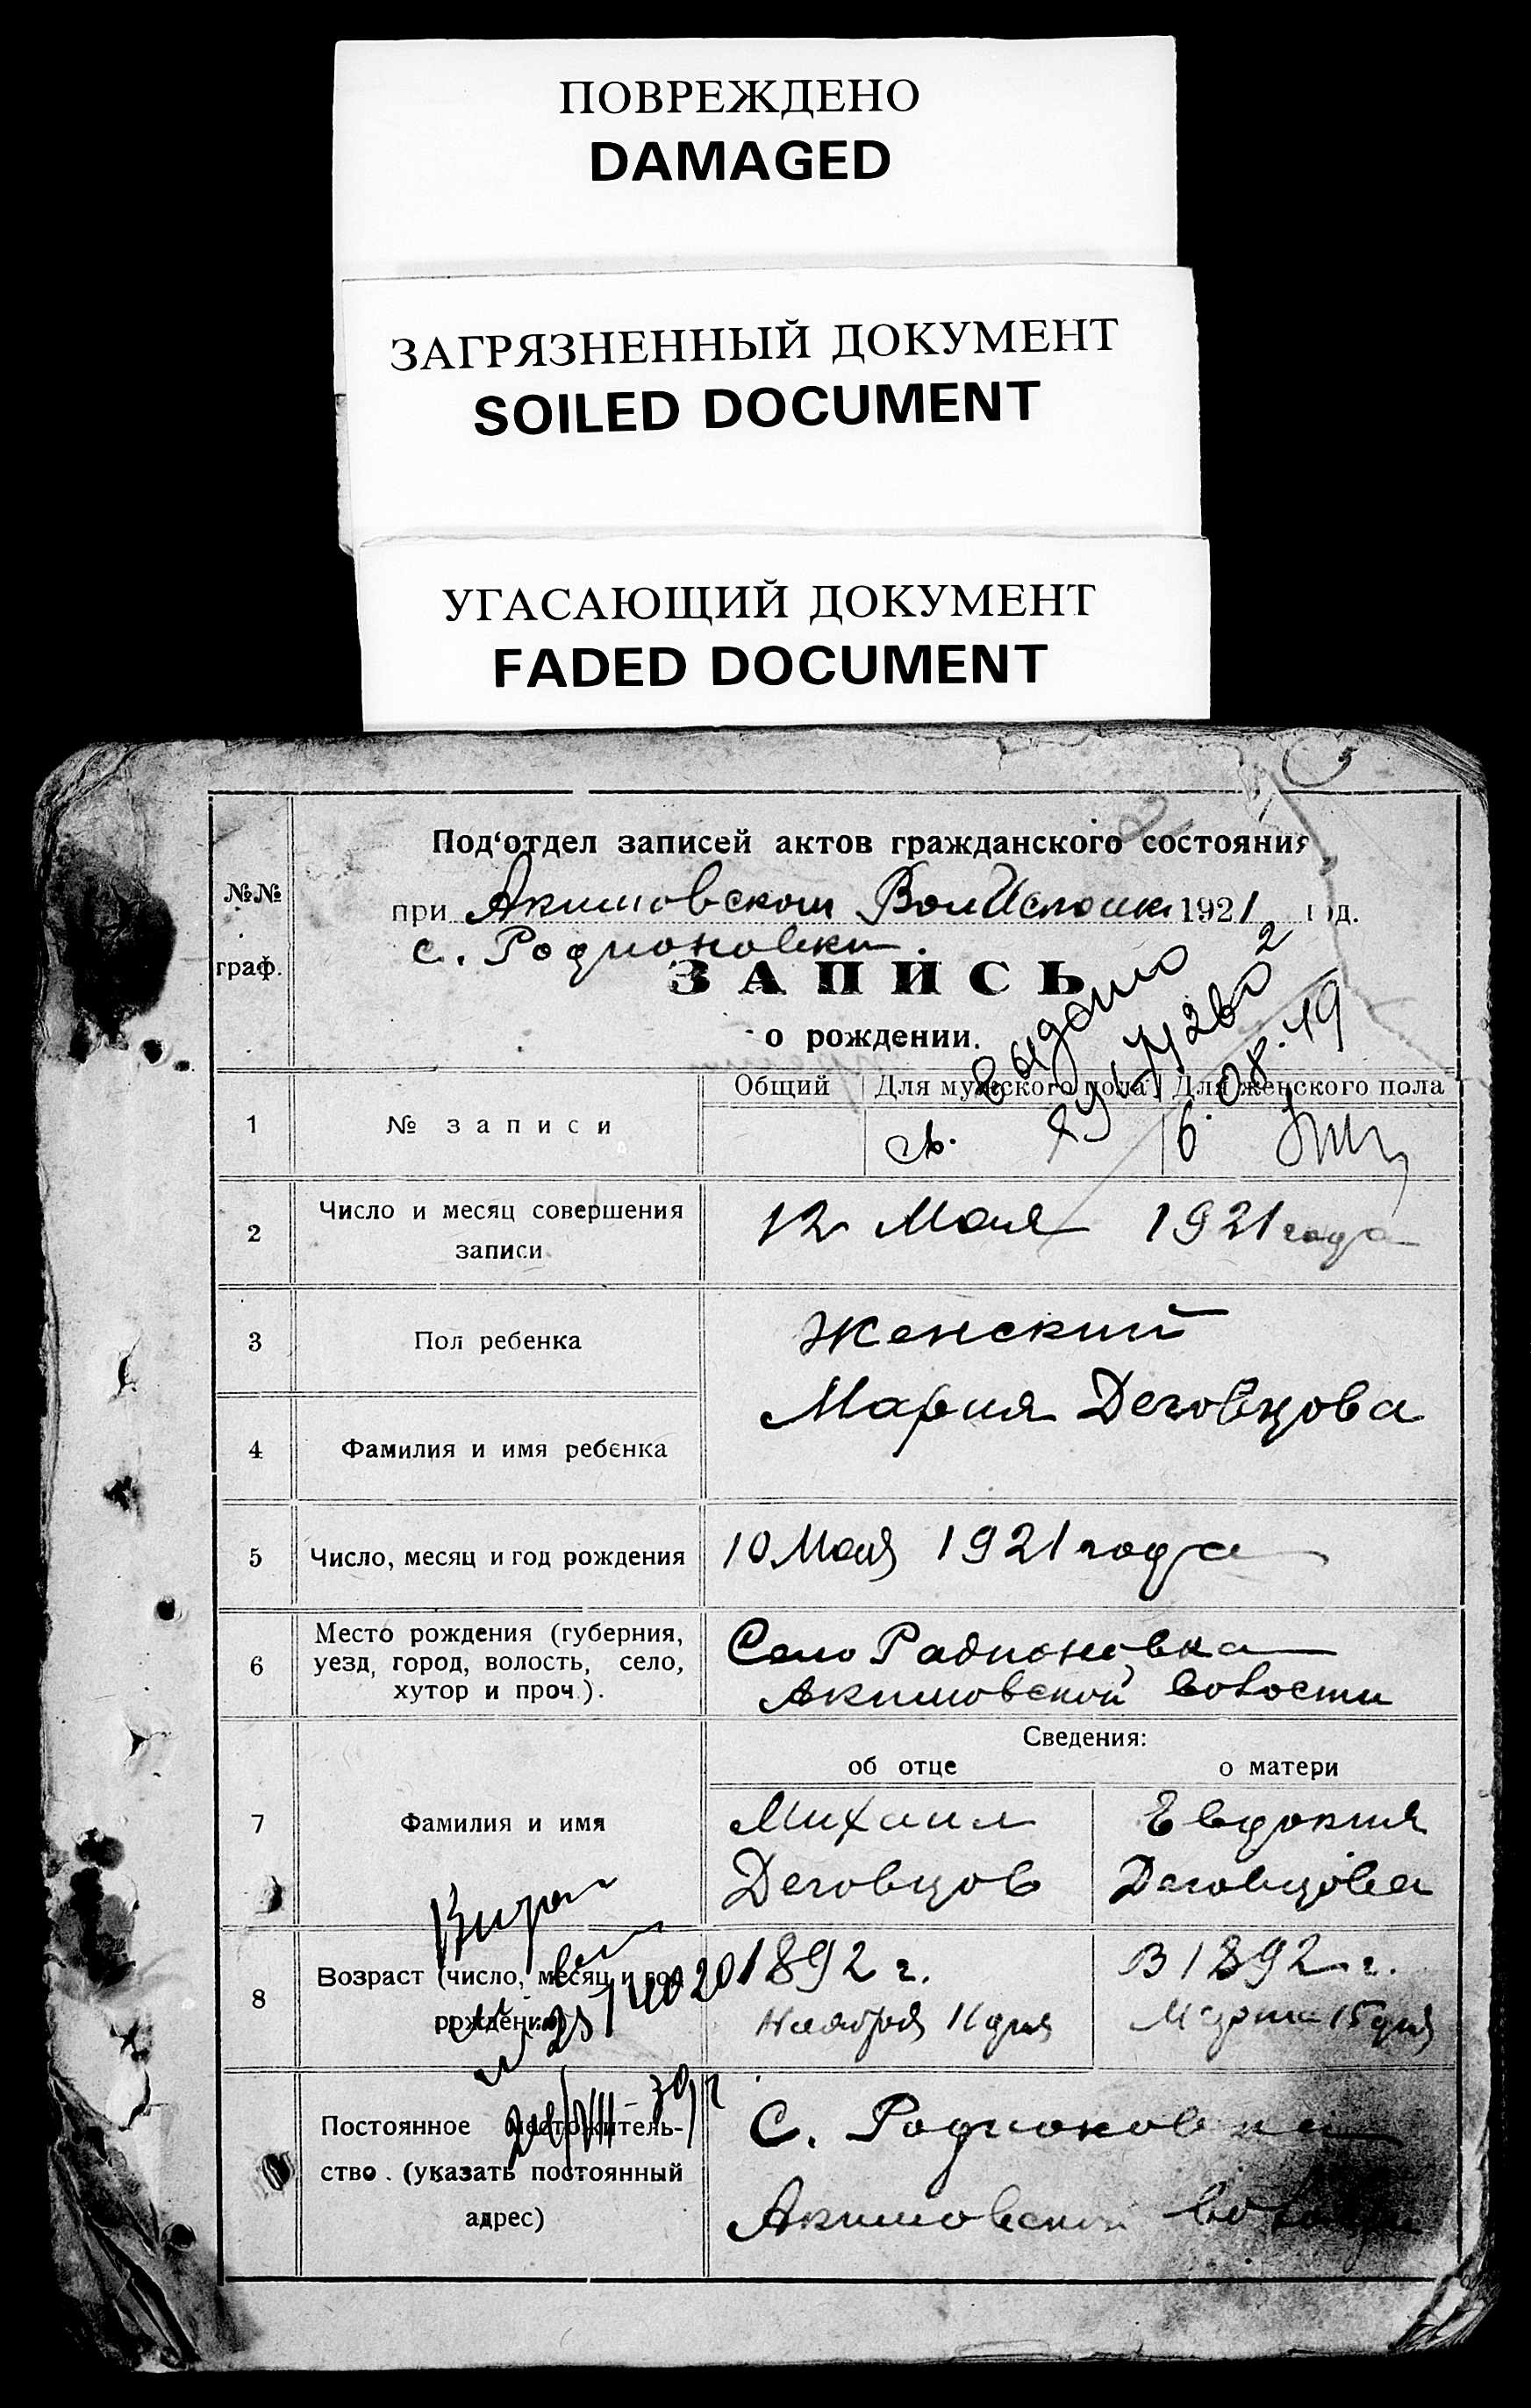 ПОВРЕЖДЕНО
DAMAGED
ЗАГРЯЗНЕННЫЙ ДОКУМЕНТ
SOILED DOCUMENT
УГАСАЮЩИЙ ДОКУМЕНТ
FADED DOCUMENT
5
Под'отдел записей актов гражданского состояния
№№ граф.
при Акимовском 1921 год.
с. Родионовки.
ЗАПИСЬ
о рождении.
выдано
08.49
Общий Для мужского пола Для женского пола
1 № записи 6.
2 Число и месяц совершения
записи
12 Мая 1921 года
3 Пол ребенка Женский
Мария Деговцова
4 Фамилия и имя ребенка
5 Число, месяц и год рождения 10 Мая 1921 года
6 Место рождения (губерния,
уезд, город, волость, село,
хутор и проч.).
Село Радионовка
Акимовской волости
Сведения:
об отце о матери
7 Фамилия и имя
Михаил Евдокия
Деговцов Деговцова
8 Возраст (число, месяц и год
рождения)
1892 г. В 1892 г.
Ноября 11 дня Марта 15 дня
Постоянное местожитель-
ство (указать постоянный
адрес)
С. Родионовка
Акимовской волости